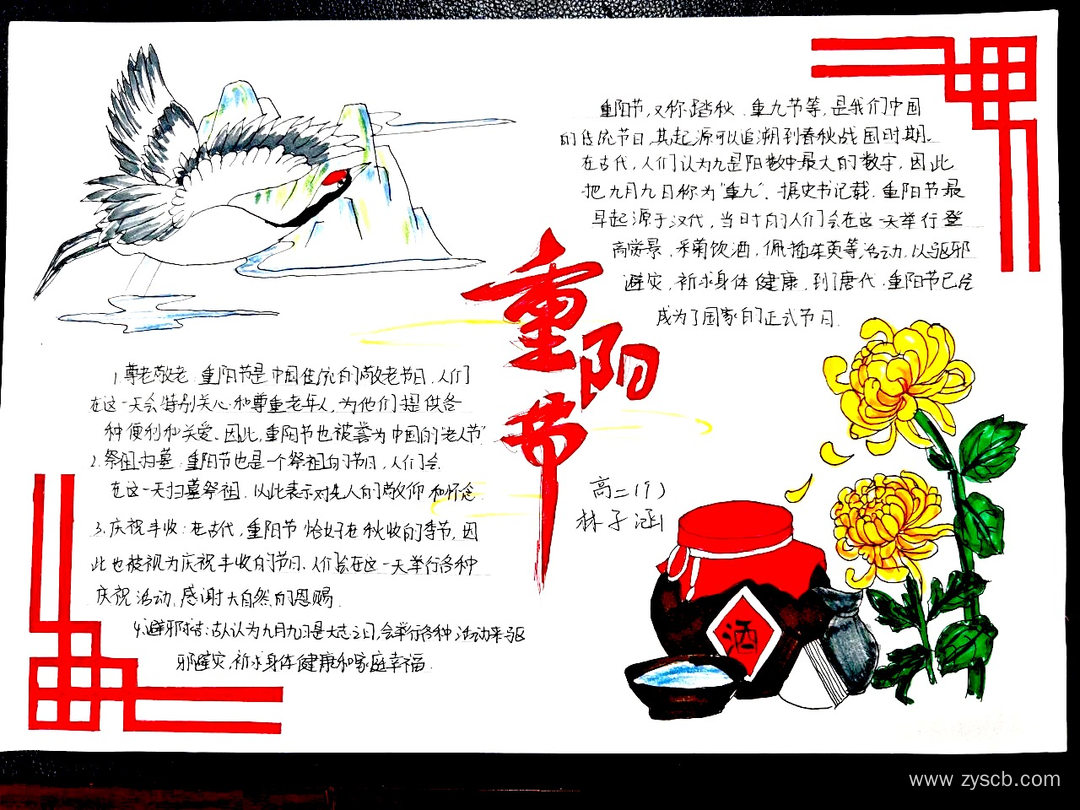 重阳节,又称踏秋、重九节等,是我们中国
的传统节日,其起源可以追溯到春秋战国时期。
在古代,人们认为九是阳数中最大的数字,因此
把九月九日称为"重九"。据史书记载,重阳节最
早起源于汉代,当时的人们会在这一天举行登
高赏景、采菊饮酒,佩插茱萸等活动,以驱邪
避灾,祈求身体健康,到了唐代,重阳节已经
成为了国家的正式节日.
重阳节
1.尊老敬老:重阳节是中国传统的敬老节日,人们
在这一天会特别关心和尊重老年人,为他们提供各
种便利和关爱。因此,重阳节也被誉为中国的"老人节"
2.祭祖扫墓:重阳节也是一个祭祖的节日,人们会
在这一天扫墓祭祖,以此表示对先人的敬仰和怀念.
3.庆祝丰收:在古代,重阳节恰好在秋收的季节,因
此也被视为庆祝丰收的节日.人们会在这一天举行各种
庆祝活动,感谢大自然的恩赐.
4.避邪:古人认为九月九日是大之日,会举行各种活动来驱
邪避灾,祈求身体健康和家庭幸福.
高二(9)
林子涵
酒
www.zyscb.com